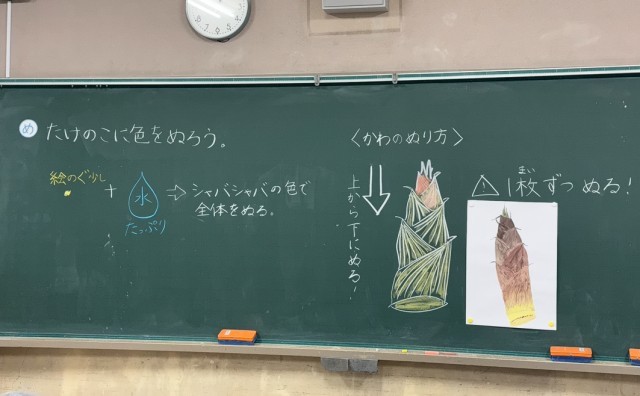 め たけのこに色をぬろう。
絵のぐ少し
+
水
たっぷり
⇨ シャバシャバの色で
全体をぬる。
〈かわのぬり方〉
上から下にぬる!
⚠ 1枚ずつぬる!
まい